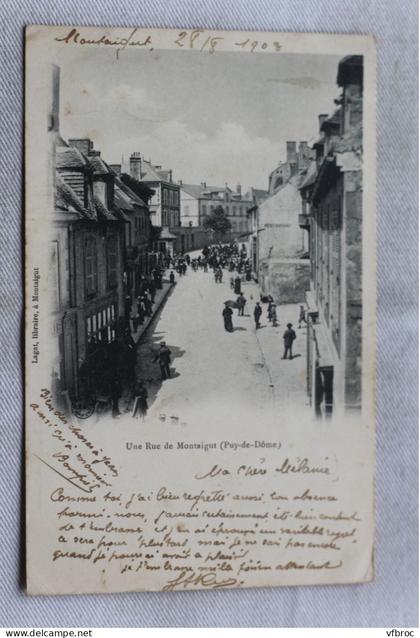 Montaigut 28/8 1903
Lagat, libraire, à Montaigut
Une Rue de Montaigut (Puy-de-Dôme)
Bien des choses à
ainsi qu'à
Ma chère Mélanie,
Comme toi j'ai bien regretté aussi ton absence
parmi nous, j'aurais certainement été bien content
de t'embrasser et j'en ai éprouvé un véritable regret
ce sera pour plus tard mais je ne sais pas encore
quand je pourrai avoir ce plaisir
je t'embrasse mille fois bien
www.delcampe.net
vfbroc